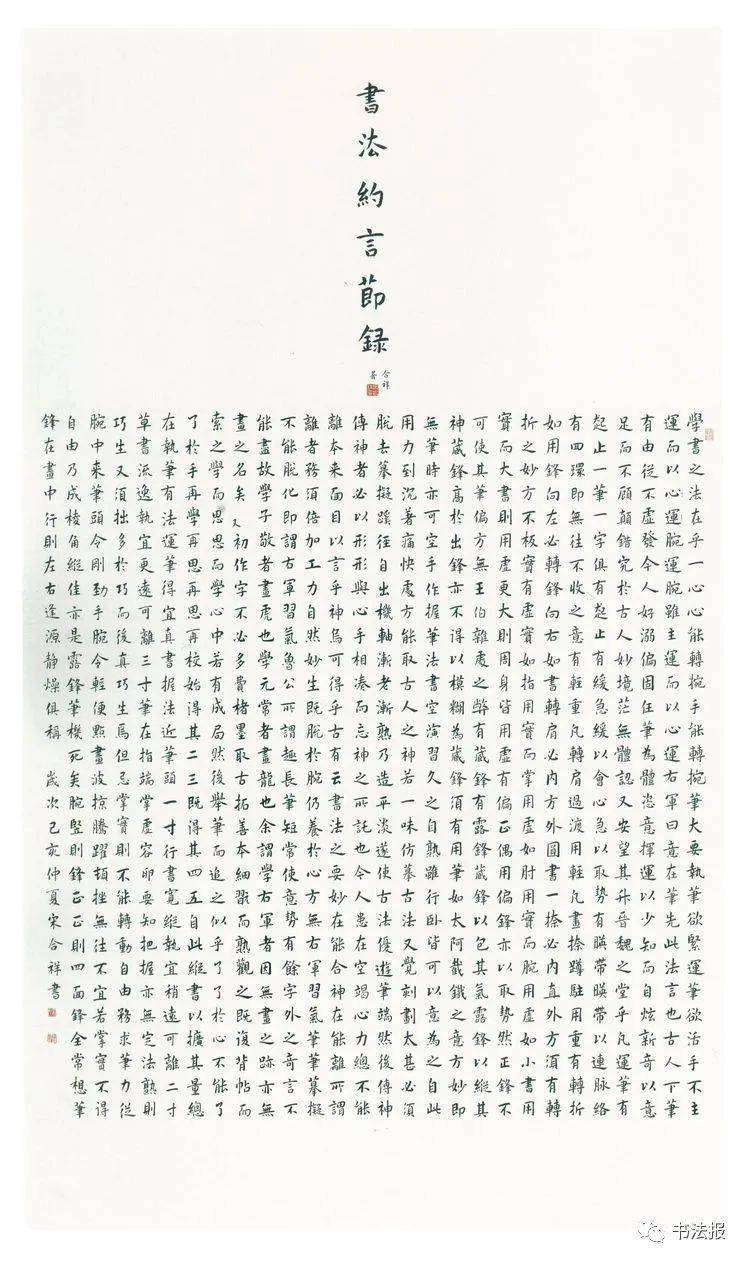 書法約言節録
合祥
書
學書之法在乎一心心能轉捥手能轉捥筆大要執筆欲緊運筆欲活手不主
運而以心運腕運腕雖主運而以心運右軍曰意在筆先此法言也古人下筆
有由從不虛發令人好溺偏固任筆為體恣意揮運以少知而自炫新奇以意
足而不顧顛錯究於古人妙境茫無體認又安望其升晉魏之堂乎凡運筆有
起止一筆一字俱有起止有緩急緩以會心急以取勢有䀹帶䀹帶以連脉絡
有四環即無往不收之意有輕重凡轉肩過渡用輕凡畫捺蹲駐用重有轉折
如用鋒向左必轉鋒向右如書轉肩必內方外圓書一捺必內直外方須有轉
折之妙方不板實有虛實如指用實而掌用虛如肘用實而腕用虛如小書用
實而大書則用虛更大則周身皆用虛有偏正偶用偏鋒亦以取勢然正鋒不
可使其筆偏方無王伯雜處之弊有藏鋒有露鋒藏鋒以包其氣露鋒以縱其
神藏鋒高於出鋒亦不得以模糊為藏鋒須有用筆如太阿截鐵之意方妙即
無筆時亦可空手作握筆法書空演習久之自熟雖行卧皆可以意為之自此
用力到沉著痛快處方能取古人之神若一味仿摹古法又覺刻劃太甚必須
脫去摹擬蹊徑自出機軸漸老漸熟乃造平淡遂使古法優遊筆端然後傳神
傳神者必以形形與心手相湊而忘神之所託也今人患在空竭心力總不能
離本來面目以言乎神烏可得乎古有云書法之要妙在能合神在能離所謂
離者務須倍加工力自然妙生既脫於腕仍養於心方無右軍習氣筆筆摹擬
不能脫化即謂右軍習氣魯公所謂趣長筆短常使意勢有餘字外之奇言不
能盡故學子敬者畫虎也學元常者畫龍也余謂學右軍者因無畫之跡亦無
畫之名矣又初作字不必多費楮墨取古拓善本細翫而熟觀之既復背帖而
索之學而思思而學心中若有成局然後舉筆而追之似乎了了於心不能了
了於手再學再思再思再校始得其二三既得其四五自此縱書以擴其量總
在執筆有法運筆得宜真書握法近筆頭一寸行書寬縱執宜稍遠可離二寸
草書流逸執宜更遠可離三寸筆在指端掌虛容卵要知把握亦無定法熟則
巧生又須拙多於巧而後真巧生焉但忌掌實則不能轉動自由務求筆力從
腕中來筆頭令剛勁手腕令輕便點畫波掠騰躍頓挫無往不宜若掌實不得
自由乃成棱角縱佳亦是露鋒筆機死矣腕豎則鋒正正則四面鋒全常想筆
鋒在畫中行則左右逢源靜燥俱稱 歲次己亥仲夏宋合祥書
书法报